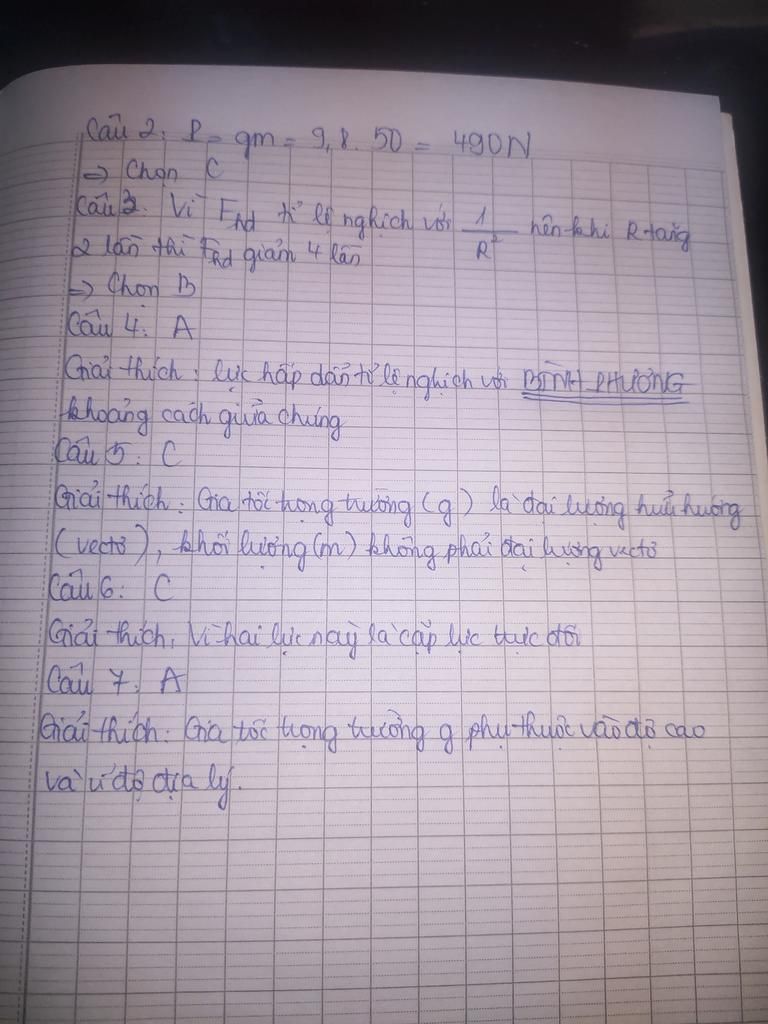 Câu 2: P = gm = 9,8. 50 = 490N
=> Chọn C
Câu 3. Vì Fhd tỉ lệ nghịch với 1/R² nên khi R tăng
2 lần thì Fhd giảm 4 lần
=> Chọn B
Câu 4: A
Giải thích: lực hấp dẫn tỉ lệ nghịch với BÌNH PHƯƠNG
khoảng cách giữa chúng
Câu 5: C
Giải thích: Gia tốc trọng trường (g) là đại lượng hữu hướng
(vectơ), khối lượng (m) không phải đại lượng vectơ
Câu 6: C
Giải thích: Vì hai lực này là cặp lực trực đối
Câu 7: A
Giải thích: Gia tốc trọng trường g phụ thuộc vào độ cao
và vĩ độ địa lý.